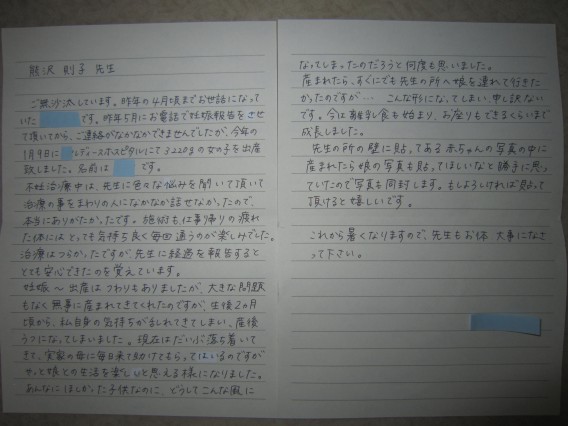 熊沢 則子 先生
ご無沙汰しています。昨年の4月頃までお世話になって
いた です。昨年5月にお電話で妊娠報告をさせ
て頂いてから、ご連絡がなかなかできませんでしたが、今年の
1月9日に レディースホスピタルにて3220gの女の子を出産
致しました。名前は です。
不妊治療中は、先生に色々な悩みを聞いて頂いて
治療の事をまわりの人になかなか話せなかったので、
本当にありがたかったです。施術も仕事帰りの疲れ
た体にはとっても気持ち良く毎回通うのが楽しみでした。
治療はつらかったですが、先生に経過を報告すると
とても安心できたのを覚えています。
妊娠～出産はつわりもありましたが、大きな問題
もなく無事に産まれてきてくれたのですが、生後2ヵ月
頃から、私自身の気持ちが乱れてきてしまい、産後
うつになってしまいました。現在はだいぶ落ち着いて
きて、実家の母に毎日来て助けてもらってはいるのですが
やっと娘との生活を楽しいと思える様になりました。
あんなにほしかった子供なのに、どうしてこんな風に
なってしまったのだろうと何度も思いました。
産まれたら、すぐにでも先生の所へ娘を連れて行きた
かったのですが… こんな形になってしまい、申し訳ない
です。今は離乳食も始まり、お座りもできるくらいまで
成長しました。
先生の所の壁に貼ってある赤ちゃんの写真の中に
産まれたら娘の写真も貼ってほしいなと勝手に思っ
ていたので写真も同封します。もしよろしければ貼って
頂けると嬉しいです。
これから暑くなりますので、先生もお体 大事になさ
って下さい。